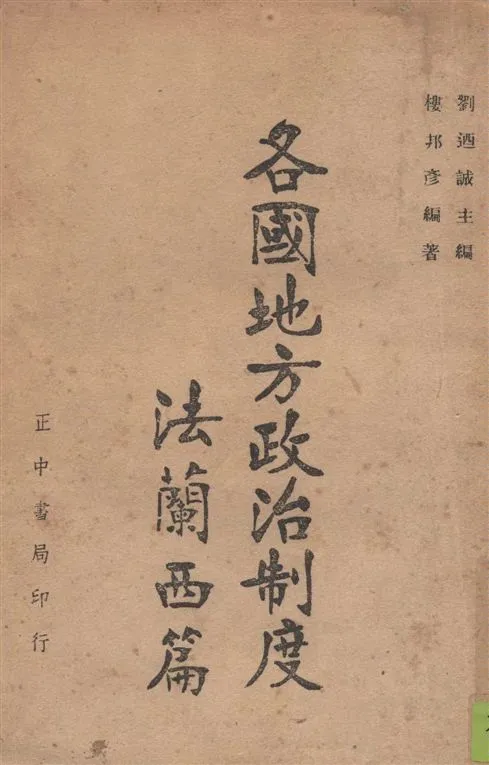 劉迺誠主編
樓邦彥編著
各國地方政治制度
法蘭西篇
正中書局印行